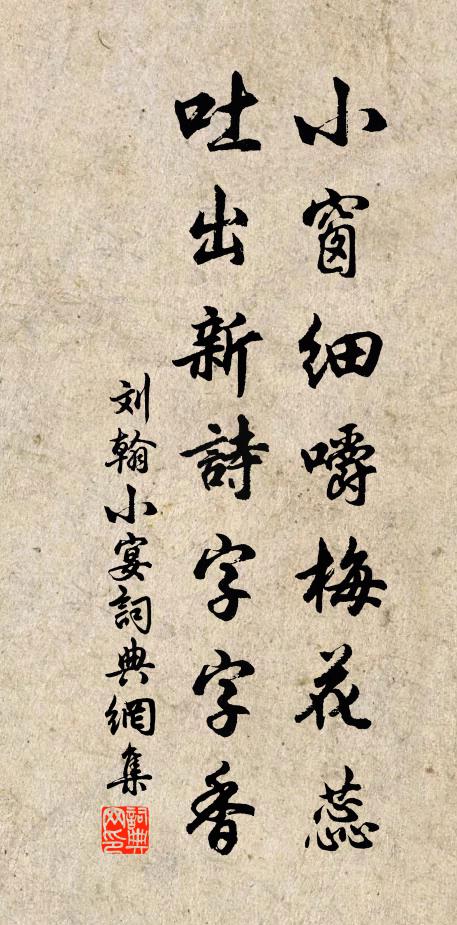 小窗细嚼梅花蕊
吐出新詩字字香
刘翰小宴詞典網集
詞典网印